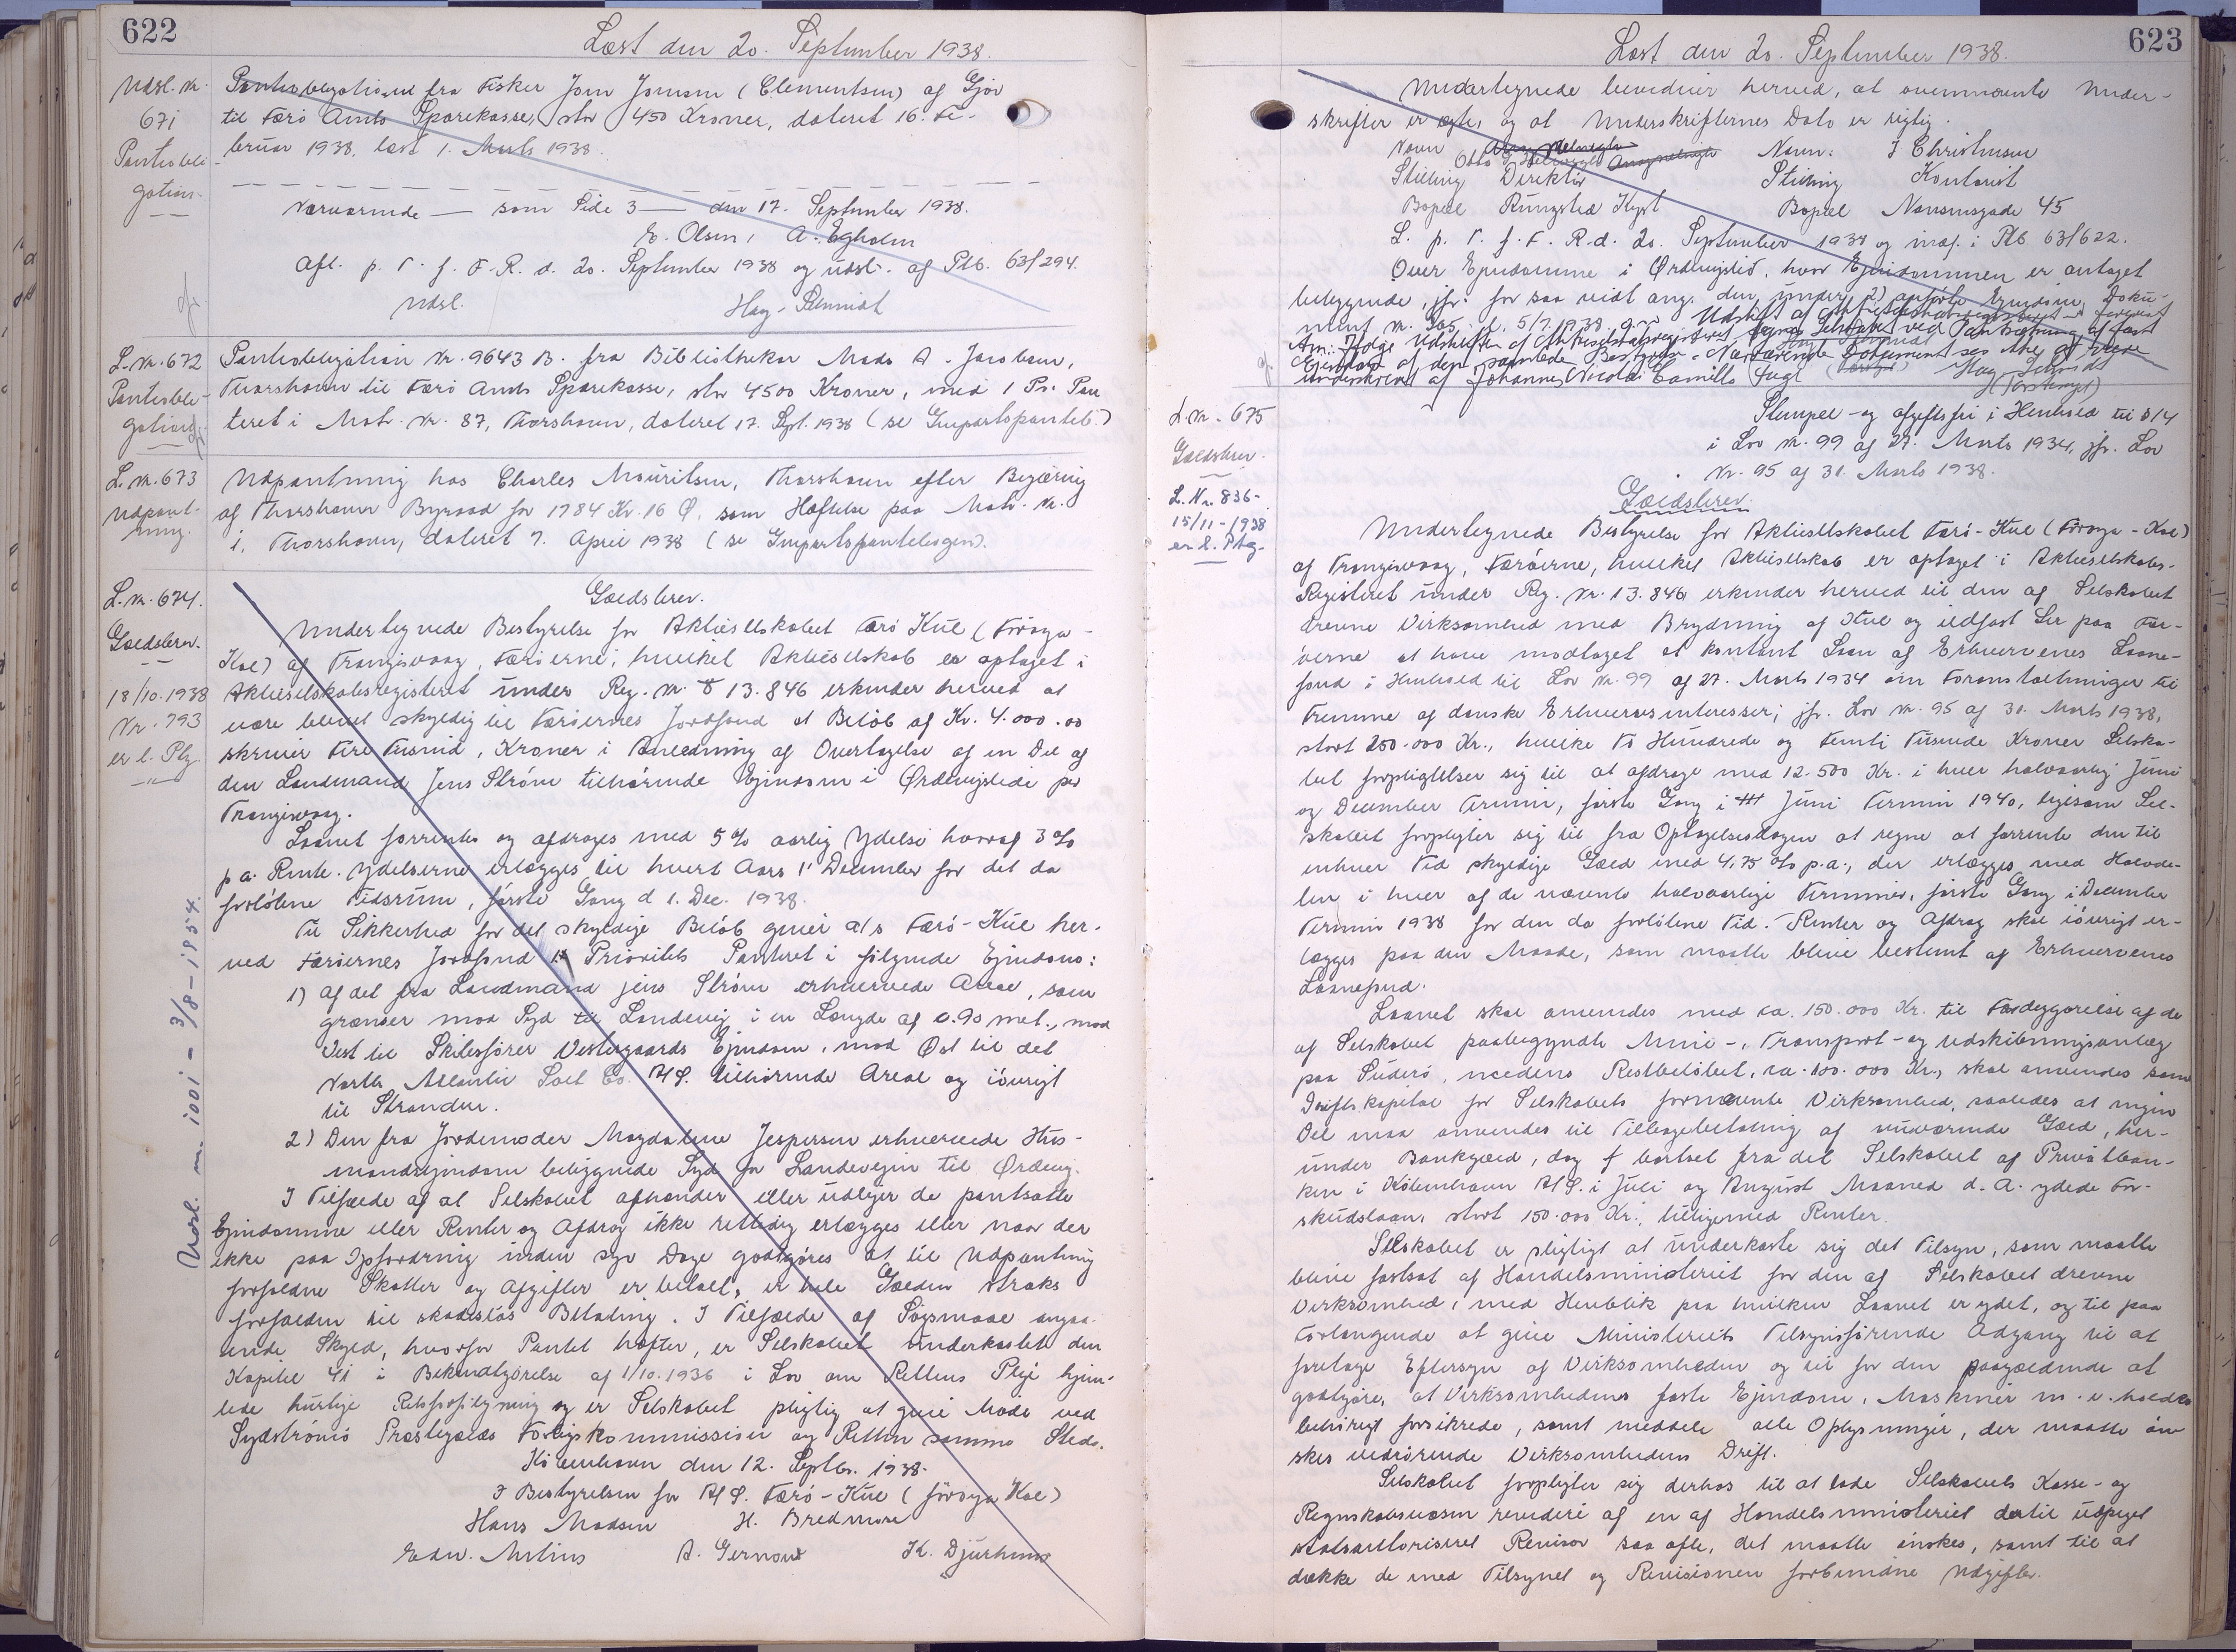 622
Læst den 20. September 1938.
Udsl. Nr.
671
Pantobli-
gation.
Pantobligationen fra Fisker Joen Joensen (Clementsen) af Gjov
til Færø Amts Sparekasse, stor 450 Kroner, dateret 16. Fe-
bruar 1938, læst 1. Marts 1938.
Nærværende — som Side 3 — den 17. September 1938.
E. Olsen, A. Egholm
Afl. p. T. f. F. R. d. 20. September 1938 og udsl. af Ptb. 63/294.
Udsl. Høg-Schmidt
L. Nr. 672
Pantoble-
gation.
Pantobligation Nr. 9643 B. fra Bibliothekar Mads A. Jacobsen,
Thorshavn til Færø Amts Sparekasse, stor 4500 Kroner, med 1 Pr. Pan
teret i Matr. Nr. 87, Thorshavn, dateret 17. Sept. 1938 (se Gmpartspanteb.)
L. Nr. 673
Udpant-
ning.
Udpantning hos Charles Mouritsen, Thorshavn efter Begjæring
af Thorshavn Byraad for 1784 Kr. 16 Ø. som Hæftelse paa Matr. Nr.
i, Thorshavn, dateret 7. April 1938 (se Gmpartspantebogen).
L. Nr. 674.
Gældsbrev.
18/10.1938
Nr. 793
er l. Ptg.
Udsl. Nr. 1001 - 3/8 - 1954.
Gældsbrev.
Undertegnede Bestyrelse for Aktieselskabet Færø Kul (Föroya-
Kol) af Trangisvaag, Færøerne, hvilket Aktieselskab er optaget i
Aktieselskabsregisteret under Reg. Nr. 13.846 erkender herved at
være blevet skyldig til Færøernes Jordfond et Beløb af Kr. 4.000.00
skriver Fire Tusind, Kroner i Anledning af Overtagelse af en Del af
den Landmand Jens Strøm tilhørende Ejendom i Ørdevigslide pr
Trangisvaag.
Laanet forrentes og afdrages med 5% aarlig Ydelse hvoraf 3%
p.a. Rente. Ydelserne erlægges til hvert Aars 1' December for det da
forløbne Tidsrum, første Gang d 1. Dec. 1938.
Til Sikkerhed for det skyldige Beløb giver a/s Færø-Kul her-
ved Færøernes Jordfond 1' Prioritets Panteret i følgende Ejendom:
1) Af det fra Landmand jens Strøm erhvervede Areal, som
grænser mod Syd til Landevej i en Længde af c. 90 met., mod
Vest til Skibsfører Vestergaards Ejendom, mod Øst til det
North Atlantic Salt Co. A/S. tilhørende Areal og iøvrigt
til Stranden.
2) Den fra Jordemoder Magdalene Jespersen erhvervede Hus-
mandsejendom beliggende Syd for Landevejen til Ørdevig.
I Tilfælde af at Selskabet afhænder eller udlejer de pantsatte
Ejendomme eller Renter og Afdrag ikke rettidig erlægges eller naar der
ikke paa Opfordring inden syv Dage godtgøres at til Udpantning
forfaldne Skatter og Afgifter er betalt, er hele Gælden straks
forfalden til skadesløs Betaling. I Tilfælde af Søgsmaal angaa-
ende Skyld, hvorfor Pantet hæfter, er Selskabet underkastet den
Kapitel 41 i Bekendtgørelse af 1/10. 1936 i Lov om Rettens Pleje hjem-
lede hurtige Retsforfølgning og er Selskabet pligtig at give Møde ved
Sydstrømø Præstegælds Forligskommission og Retten samme Steds.
København den 12. Septbr. 1938.
I Bestyrelsen for A/S. Færø-Kul (Föroya Kol)
Hans Madsen H. Bredmore
Edw. Mitens A. Gernow K. Djurhuus
623
Læst den 20. September 1938.
Undertegnede bevidner herved, at ovennævnte Under-
skrifter er ægte, og at Underskrifternes Dato er rigtig.
Navn Otto Navn: I Christensen
Stilling Direktør Stilling Kontorist
Bopæl Rungsted Kyst Bopæl Nansensgade 45
L. p. T. f. F. R. d. 20. September 1938 og indf. i Ptb. 63/622.
Over Ejendomme i Ørdevigslid, hvor Ejendommen er antaget
beliggende, jfr. for saa vidt ang. den under 2) anførte Ejendom, Doku-
ment Nr. 505, l. 5/7. 1938
Anm: Ifølge Udskriften af Aktieselskabsregisteret tegnes Selskabet ved Pantsætning af fast
Ejendom af den samlede Bestyrelse. Nærværende Dokument ses ikke at være
underskrevet af Johannes Nicolai Camillo Fugl Høg-Schmidt
L. Nr. 675
Gældsbrev.
L. Nr. 836-
15/11-1938
er l. Ptg.
Stempel- og afgiftsfri i Henhold til §14
i Lov Nr. 99 af 27. Marts 1934, jfr. Lov
Nr. 95 af 31. Marts 1938.
Gældsbrev.
Undertegnede Bestyrelse for Aktieselskabet Færö-Kul (Föroya-Kol)
af Trangisvaag, Færöerne, hvilket Aktieselskab er optaget i Aktieselskabs-
Registeret under Reg. Nr. 13.846 erkender herved til den af Selskabet
drevne Virksomhed med Brydning af Kul og ildfast Ler paa Fær-
öerne at have modtaget et kontant Laan af Erhvervenes Laane-
fond i Henhold til Lov Nr. 99 af 27. Marts 1934 om Foranstaltninger til
Fremme af danske Erhvervsinteresser, jfr. Lov Nr. 95 af 31. Marts 1938,
stort 250.000 Kr., hvilke To Hundrede og Femti Tusinde Kroner Selska-
bet forpligtelser sig til at afdrage med 12.500 Kr. i hver halvaarlig Juni
og December Termin, første Gang i Juni Termin 1940, ligesom Sel-
skabet forpligter sig til fra Optagelsesdagen at regne at forrente den til
enhver Tid skyldige Gæld med 4,75 o/o p.a., der erlægges med Halvde-
len i hver af de nævnte halvaarlige Terminer, første Gang i December
Termin 1938 for den da forløbne Tid. Renter og Afdrag skal iøvrigt er-
lægges paa den Maade, som maatte blive bestemt af Erhvervenes
Laanefond.
Laanet skal anvendes med ca. 150.000 Kr. til Færdiggørelse af de
af Selskabet paabegyndte Mine-, Transport- og Udskibningsanlæg
paa Suderö, medens Restbeløbet, ca. 100.000 Kr., skal anvendes som
Driftskapital for Selskabets fornævnte Virksomhed, saaledes at ingen
Del maa anvendes til Tilbagebetaling af nuværende Gæld, her-
under Bankgæld, dog f bortset fra det Selskabet af Privatban-
ken i København A/S. i Juli og August Maaned d. A. ydede For-
skudslaan, stort 150.000 Kr., tilligemed Renter.
Selskabet er pligtigt at underkaste sig det Tilsyn, som maatte
blive fastsat af Handelsministeriet for den af Selskabet drevne
Virksomhed, med Henblik paa hvilken Laanet er ydet, og til paa
Forlangende at give Ministeriets Tilsynsførende Adgang til at
foretage Eftersyn af Virksomheden og til for den paagældende at
godtgøre, at Virksomhedens faste Ejendom, Maskiner m. v. holdes
behörigt forsikrede, samt meddele alle Oplysninger, der maatte øn
skes vedrørende Virksomhedens Drift.
Selskabet forpligter sig derhos til at lade Selskabets Kasse- og
Regnskabsvæsen revidere af en af Handelsministeriet dertil udpeget
statsautoriseret Revisor saa ofte, det maatte ønskes, samt til at
dække de med Tilsynet og Revisionen forbundne Udgifter.